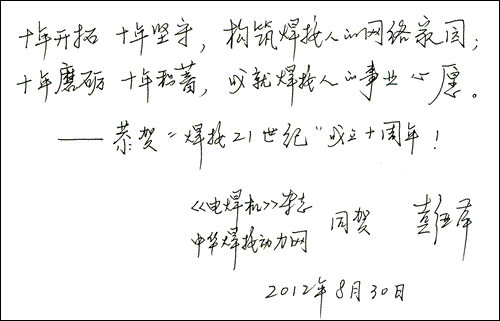 十年开拓 十年坚守，构筑焊接人的网络家园；
十年磨砺 十年积蓄，成就焊接人的事业心愿。
——恭贺“焊接21世纪”成立十周年！
《电焊机》杂志
中华焊接动力网 同贺
2012年8月30日